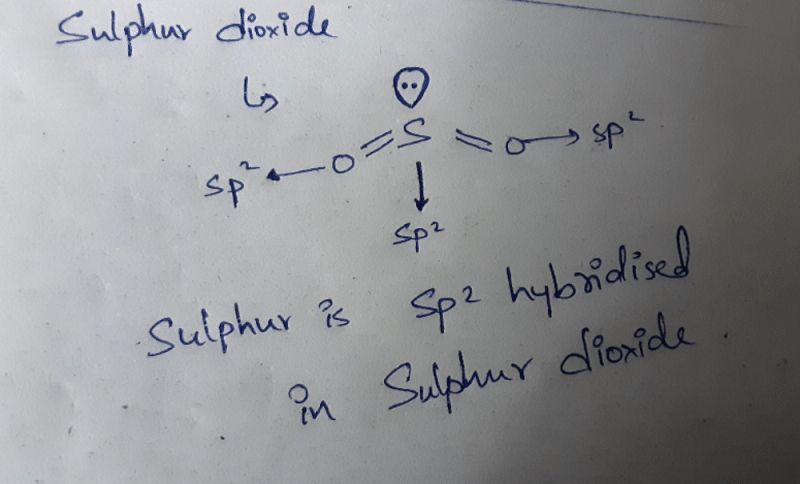 Sulphur dioxide
↳
S
O O → sp²
sp² ←
↓
sp²
Sulphur is sp² hybridised
in Sulphur dioxide.